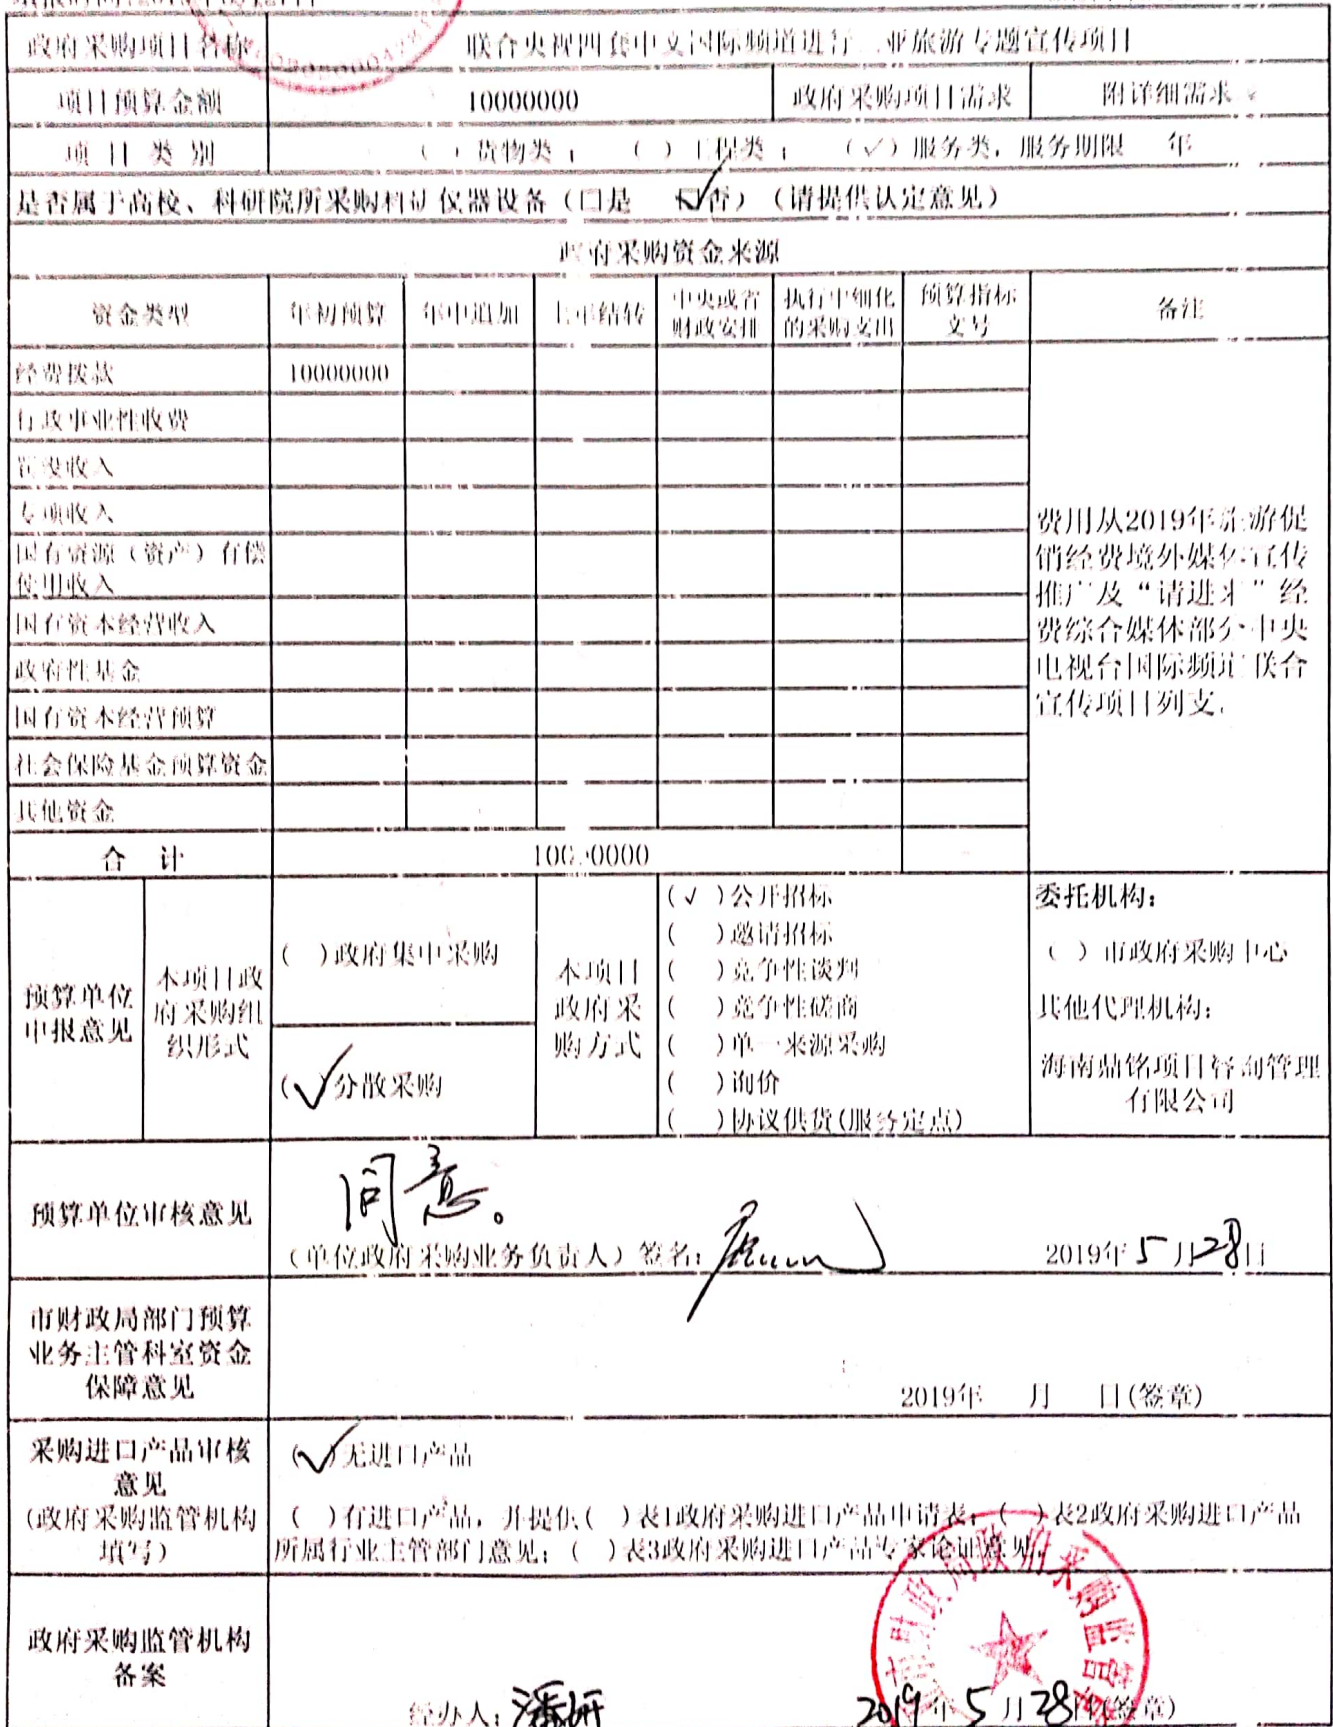 政府采购项目名称 联合央视四套中文国际频道进行三亚旅游专题宣传项目
项目预算金额 10000000 政府采购项目需求 附详细需求
项目类别 （ ）货物类； （ ）工程类； （✓）服务类，服务期限 年
是否属于高校、科研院所采购科研仪器设备（口是 ☑否）（请提供认定意见）
政府采购资金来源
资金类型 年初预算 年中追加 上年结转 中央或省财政安排 执行中细化的采购支出 预算指标文号 备注
经费拨款 10000000
行政事业性收费
罚没收入
专项收入
国有资源（资产）有偿
使用收入
国有资本经营收入
政府性基金
国有资本经营预算
社会保险基金预算资金
其他资金
费用从2019年旅游促
销经费境外媒体宣传
推广及“请进来”经
费综合媒体部分中央
电视台国际频道联合
宣传项目列支。
合 计 10000000
预算单位
申报意见
本项目政
府采购组
织形式
( )政府集中采购
(✓)分散采购
本项目
政府采
购方式
(✓ )公开招标
( )邀请招标
( )竞争性谈判
( )竞争性磋商
( )单一来源采购
( )询价
( )协议供货(服务定点)
委托机构：
（ ）市政府采购中心
其他代理机构：
海南鼎铭项目咨询管理
有限公司
预算单位审核意见
同意。
（单位政府采购业务负责人）签名： 2019年5月28日
市财政局部门预算
业务主管科室资金
保障意见
2019年 月 日(签章)
采购进口产品审核
意见
(政府采购监管机构
填写)
(✓)无进口产品
( )有进口产品，并提供( )表1政府采购进口产品申请表；( )表2政府采购进口产品
所属行业主管部门意见；( )表3政府采购进口产品专家论证意见。
政府采购监管机构
备案
经办人：潘妍 2019年5月28日(签章)
市财政局政府采购监管